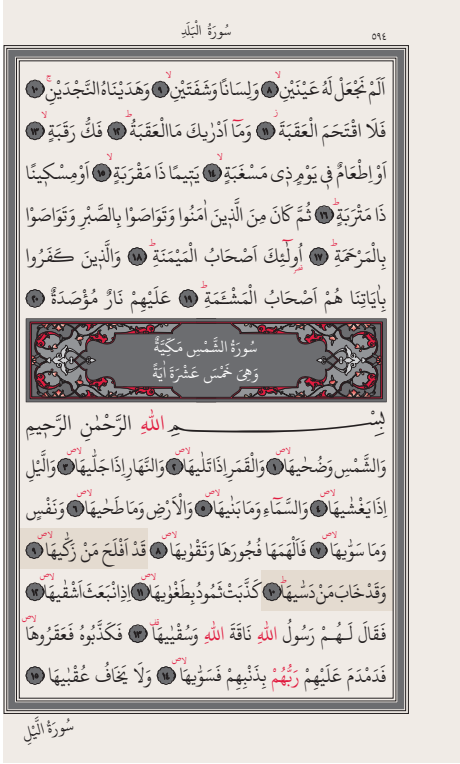 ٥٩٤ سُورَةُ الْبَلَدِ
اَلَمْ نَجْعَلْ لَهُ عَيْنَيْنِۙ ﴿٨﴾ وَلِسَانًا وَشَفَتَيْنِۙ ﴿٩﴾ وَهَدَيْنَاهُ النَّجْدَيْنِۚ ﴿١٠﴾
فَلَا اقْتَحَمَ الْعَقَبَةَۘ ﴿١١﴾ وَمَٓا اَدْرٰيكَ مَا الْعَقَبَةُۜ ﴿١٢﴾ فَكُّ رَقَبَةٍۙ ﴿١٣﴾
اَوْ اِطْعَامٌ فٖي يَوْمٍ ذٖي مَسْغَبَةٍۙ ﴿١٤﴾ يَتٖيمًا ذَا مَقْرَبَةٍۙ ﴿١٥﴾ اَوْ مِسْكٖينًا
ذَا مَتْرَبَةٍۜ ﴿١٦﴾ ثُمَّ كَانَ مِنَ الَّذٖينَ اٰمَنُوا وَتَوَاصَوْا بِالصَّبْرِ وَتَوَاصَوْا
بِالْمَرْحَمَةِۜ ﴿١٧﴾ اُو۬لٰٓئِكَ اَصْحَابُ الْمَيْمَنَةِۜ ﴿١٨﴾ وَالَّذٖينَ كَفَرُوا
بِاٰيَاتِنَا هُمْ اَصْحَابُ الْمَشْـَٔمَةِۜ ﴿١٩﴾ عَلَيْهِمْ نَارٌ مُؤْصَدَةٌ ﴿٢٠﴾
سُورَةُ الشَّمْسِ مَكِّيَّةٌ
وَهِيَ خَمْسَ عَشْرَةَ اٰيَةً
بِسْمِ اللّٰهِ الرَّحْمٰنِ الرَّحٖيمِ
وَالشَّمْسِ وَضُحٰيهَاۙ ﴿١﴾ وَالْقَمَرِ اِذَا تَلٰيهَاۙ ﴿٢﴾ وَالنَّهَارِ اِذَا جَلّٰيهَاۙ ﴿٣﴾ وَالَّيْلِ
اِذَا يَغْشٰيهَاۙ ﴿٤﴾ وَالسَّمَٓاءِ وَمَا بَنٰيهَاۙ ﴿٥﴾ وَالْاَرْضِ وَمَا طَحٰيهَاۙ ﴿٦﴾ وَنَفْسٍ
وَمَا سَوّٰيهَاۙ ﴿٧﴾ فَاَلْهَمَهَا فُجُورَهَا وَتَقْوٰيهَاۙ ﴿٨﴾ قَدْ اَفْلَحَ مَنْ زَكّٰيهَاۙ ﴿٩﴾
وَقَدْ خَابَ مَنْ دَسّٰيهَاۜ ﴿١٠﴾ كَذَّبَتْ ثَمُودُ بِطَغْوٰيهَاۙ ﴿١١﴾ اِذِ انْبَعَثَ اَشْقٰيهَاۙ ﴿١٢﴾
فَقَالَ لَهُمْ رَسُولُ اللّٰهِ نَاقَةَ اللّٰهِ وَسُقْيٰيهَاۜ ﴿١٣﴾ فَكَذَّبُوهُ فَعَقَرُوهَاۙ
فَدَمْدَمَ عَلَيْهِمْ رَبُّهُمْ بِذَنْبِهِمْ فَسَوّٰيهَاۙ ﴿١٤﴾ وَلَا يَخَافُ عُقْبٰيهَا ﴿١٥﴾
سُورَةُ الَّيْلِ